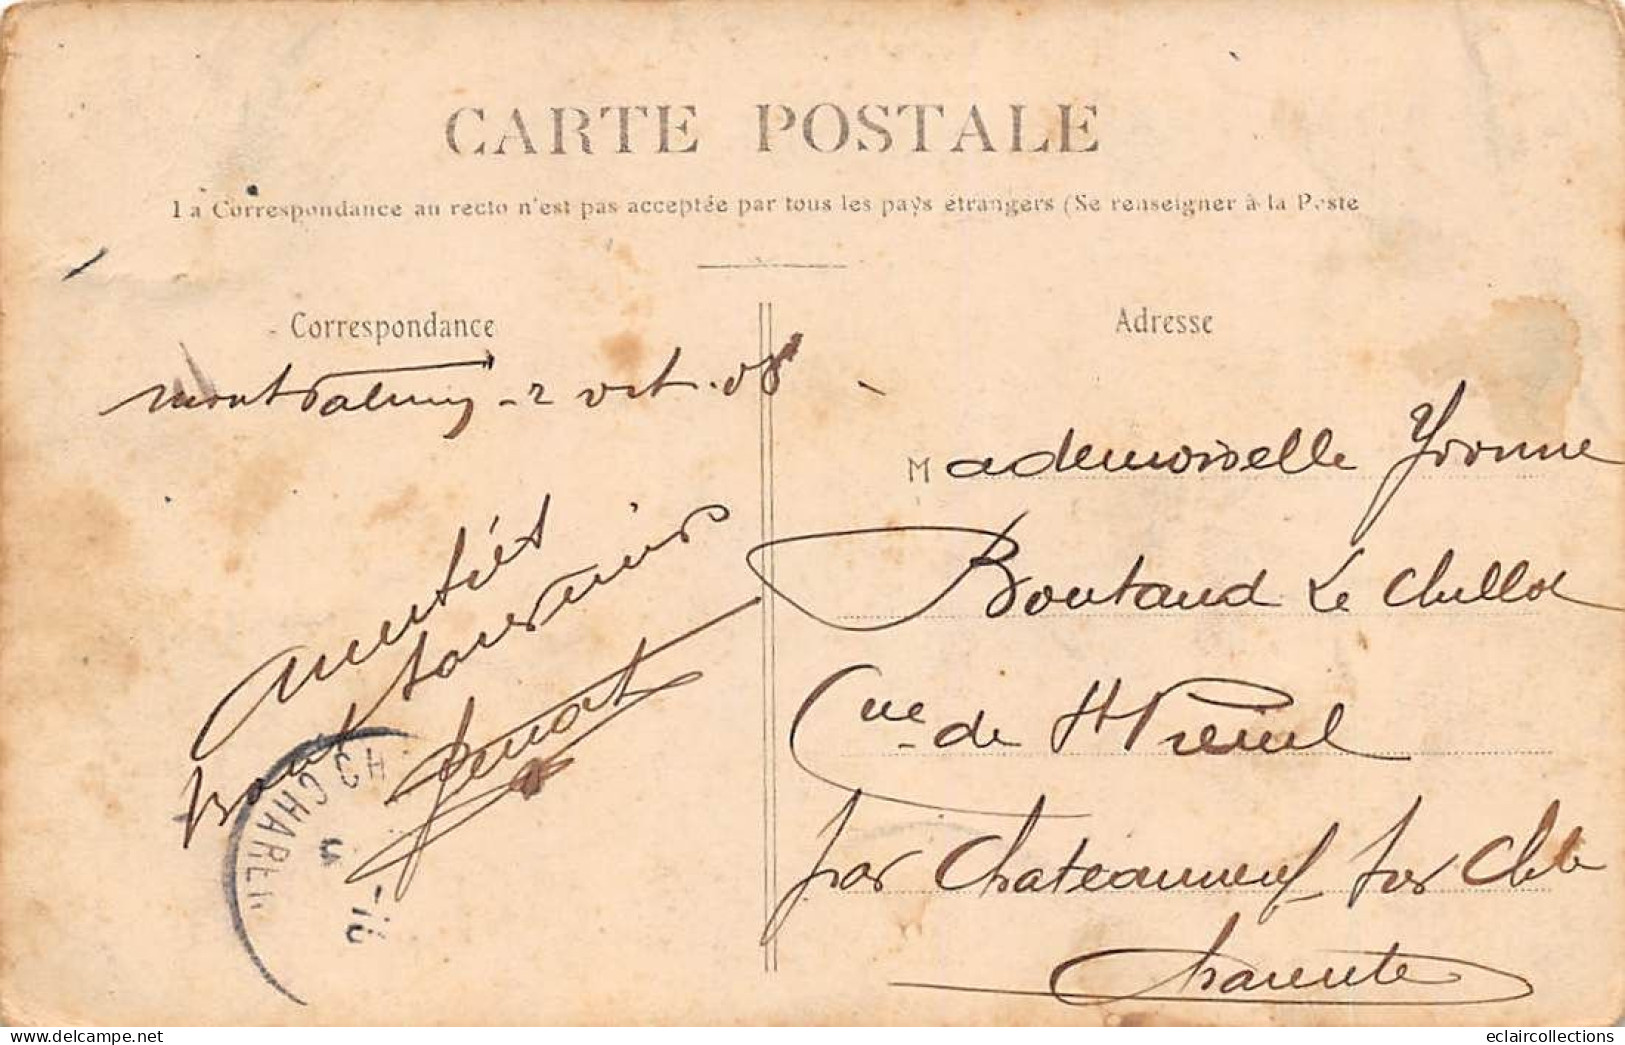 CARTE POSTALE
La Correspondance au recto n'est pas acceptée par tous les pays étrangers (Se renseigner à la Poste
Correspondance
2 oct. 08
Amitiés
souvenirs
Adresse
Mademoiselle Yvonne
Boutaud Le Chillot
Cne de St Preuil
par Chateauneuf sur Chte
Charente
CHAREN
eclaircollections